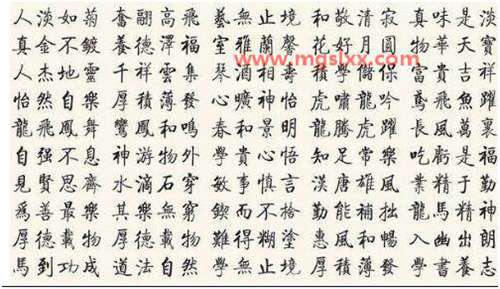 人淡如菊 奮翮高飛 藝無止境 和敬清寂 真味是淡
真金不鍍 養德澤福 室雅蘭馨 花好月圓 物華天寶
www.mgslxx.com
人杰地靈 千祥雲集 琴酒相 積學儲 富貴吉祥
怡然自樂 厚積薄發 心曠神怡 虎嘯龍吟 鳶飛魚躍
龍飛鳳舞 鸞鳳和鳴 春和景明 龍騰虎躍 長風萬裏
自强不息 神游物外 學貴心悟 知足常樂 吃虧是福
見賢思齊 水滴石穿 敏事慎言 漢唐雄風 業精于勤
爲善最樂 其樂無窮 鍥而不捨 勤能補拙 龍馬精神
厚德載物 厚德載物 難得糊塗 惠風和暢 入幽出朗
馬到功成 道法自然 學無止境 厚積薄發 學書養志